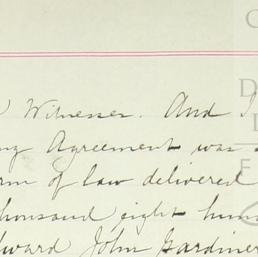 Witnesses. And I
Agreement was
of law delivered
thousand eight hun
John Gardiner